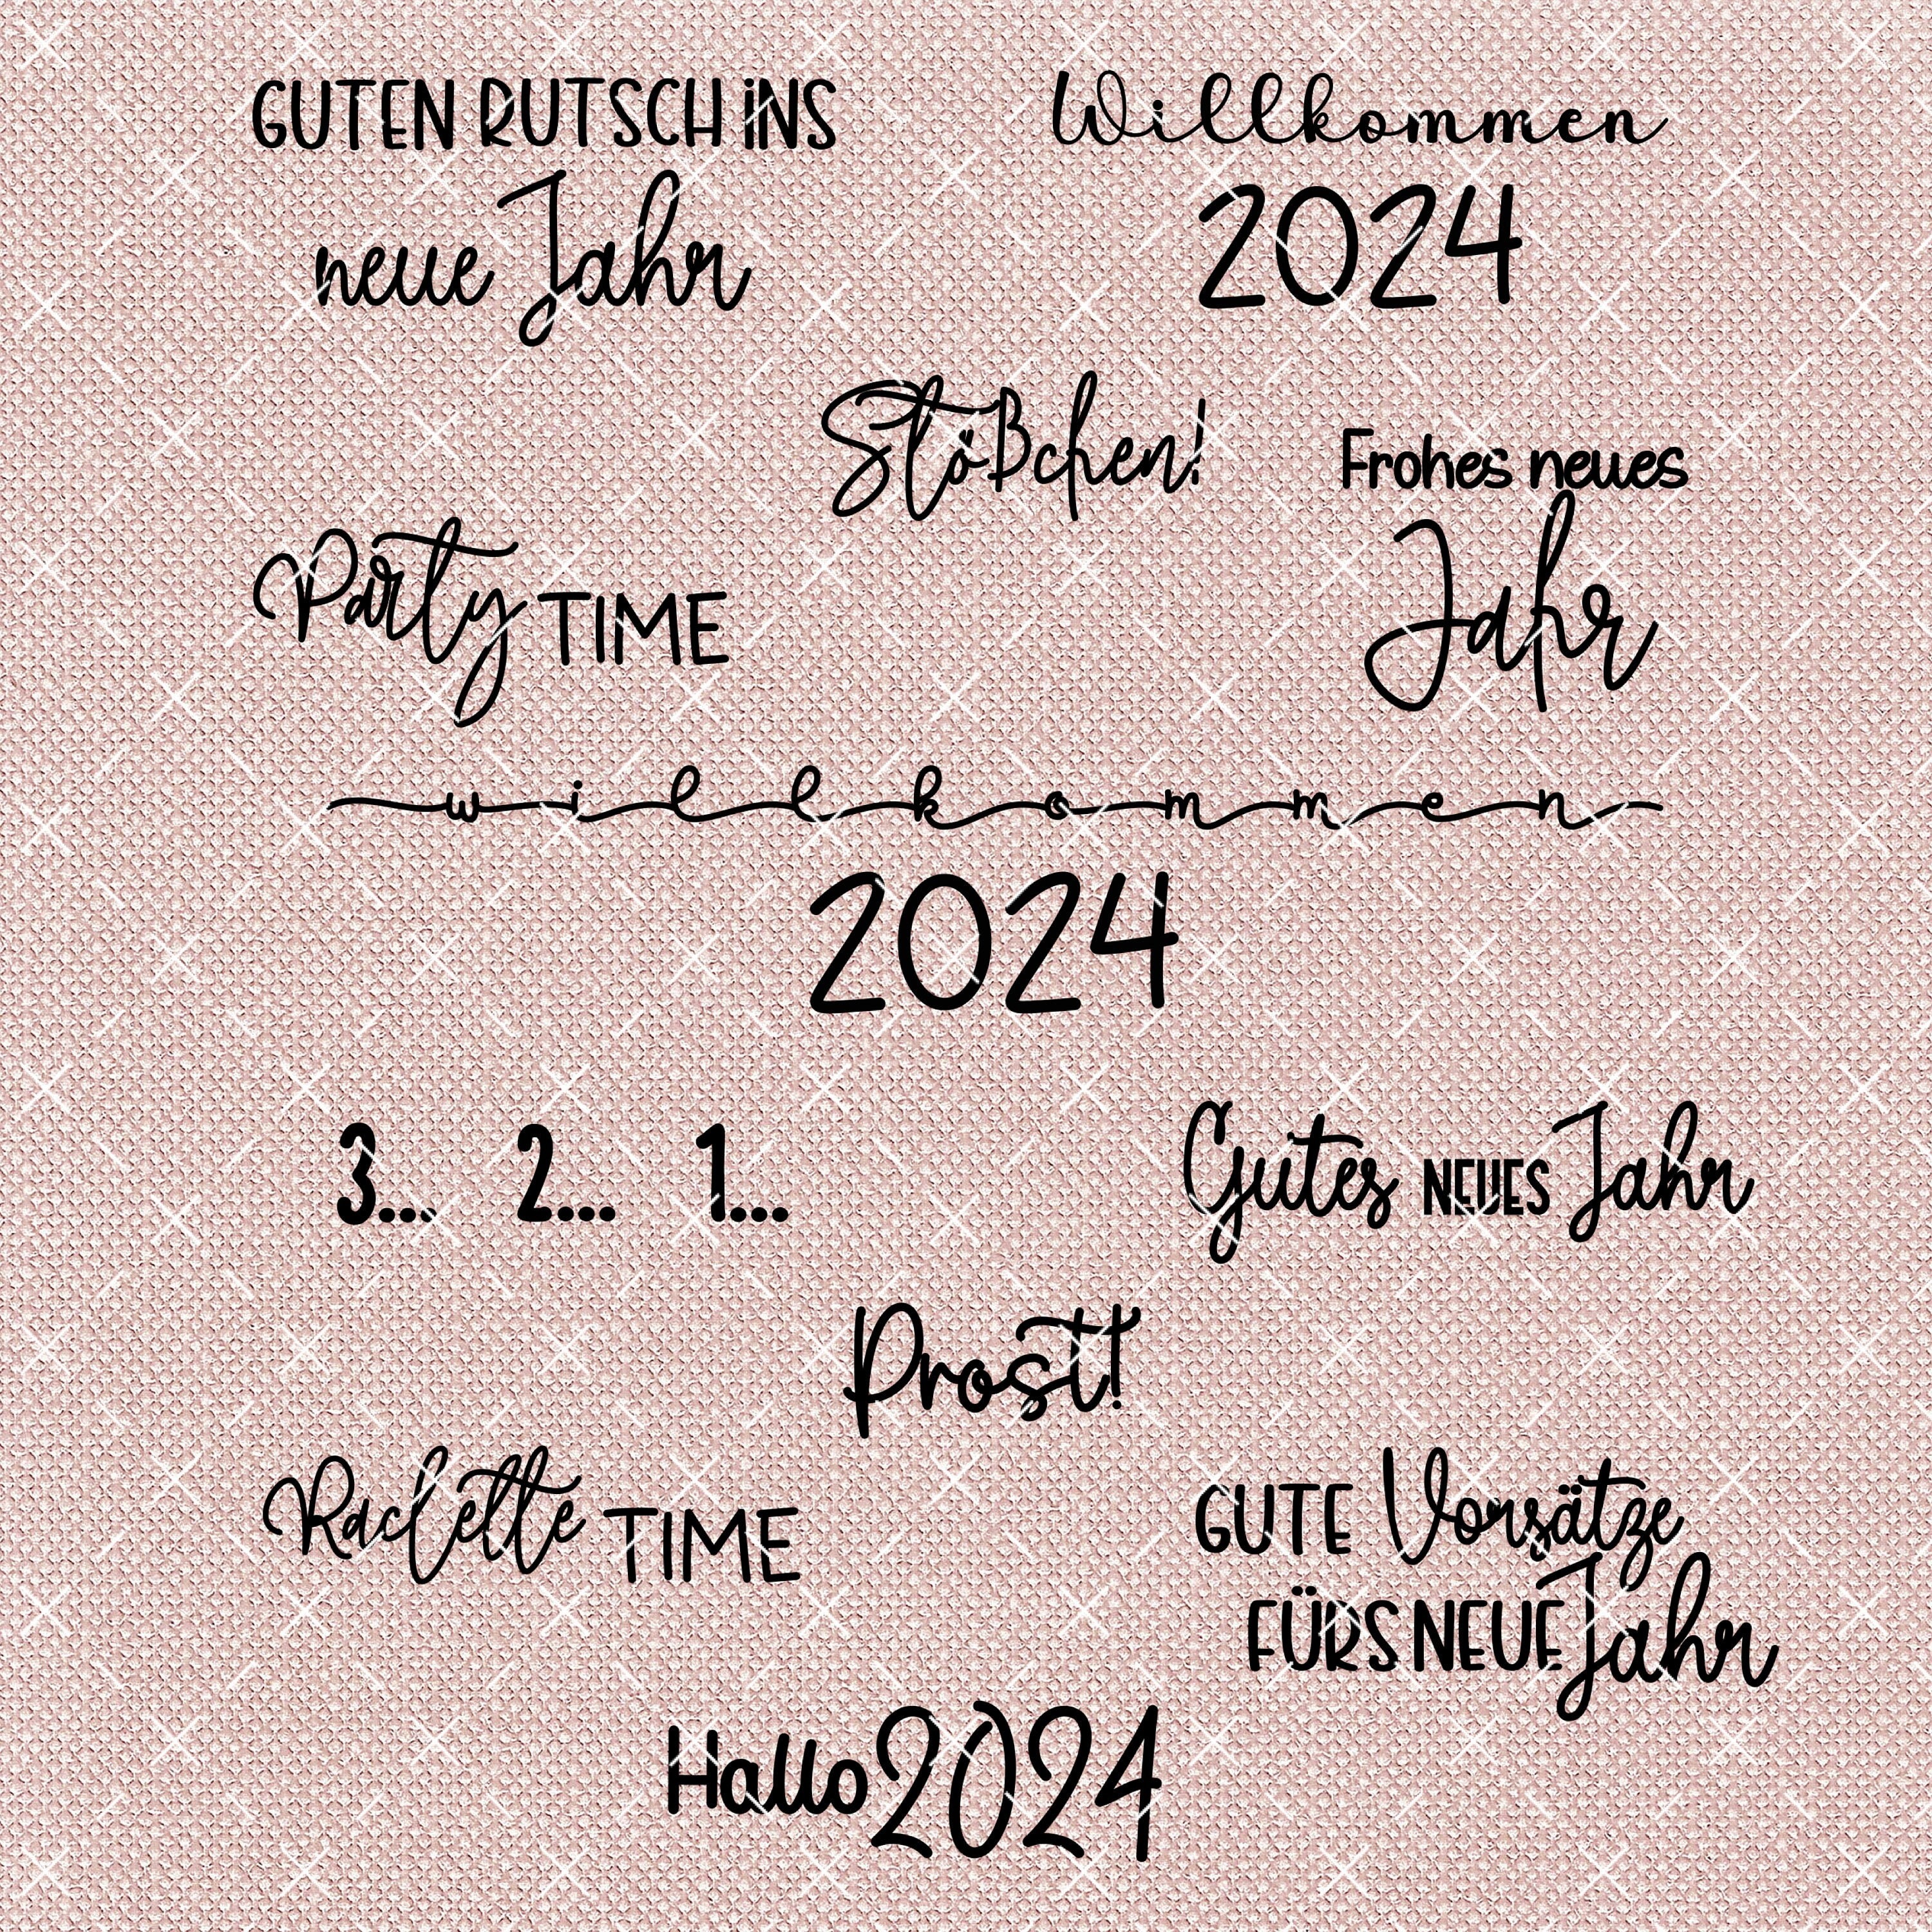 GUTEN RUTSCH iNS
neue Jahr
Willkommen
2024
Stößchen!
Frohes neues
Jahr
Party TIME
willkommen
2024
3... 2... 1...
Gutes NEUES Jahr
Prost!
Raclette TIME
GUTE Vorsätze
FÜRS NEUE Jahr
Hallo 2024